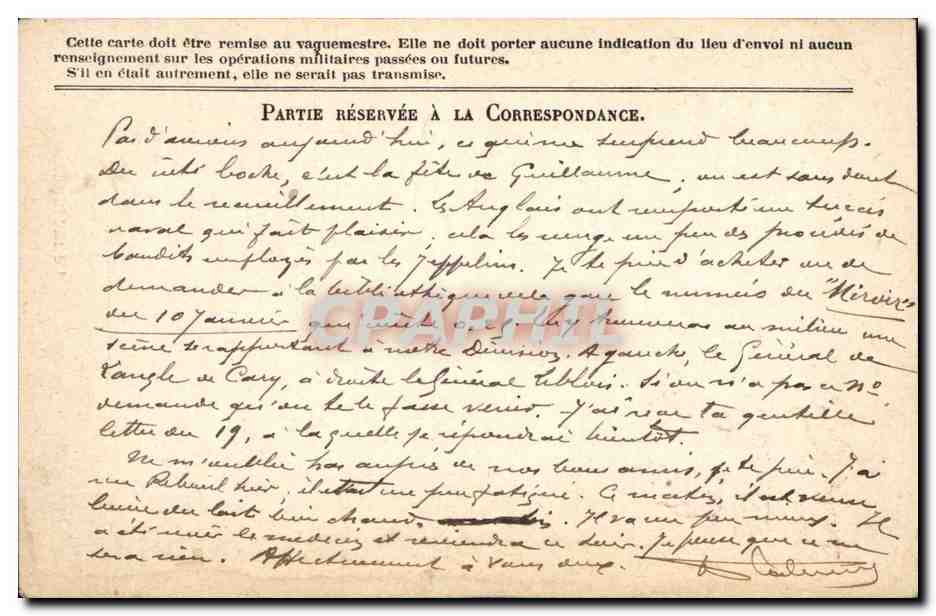 Cette carte doit être remise au vaguemestre. Elle ne doit porter aucune indication du lieu d'envoi ni aucun
renseignement sur les opérations militaires passées ou futures.
S'il en était autrement, elle ne serait pas transmise.
PARTIE RÉSERVÉE À LA CORRESPONDANCE.
Pas d'avions aujourd'hui, ce qui me surprend beaucoup.
Du côté boche, c'est la fête de Guillaume, on est sans doute
dans le recueillement. Les Anglais ont remporté un succès
naval qui fait plaisir, cela les venge un peu des procédés de
bandits employés par les Zeppelins. Je te prie d'acheter ou de
demander à la bibliothèque de la gare le numéro du "Miroir"
du 10 Janvier qui coûte 0,25. Tu y trouveras au milieu une
scène se rapportant à notre Division. A gauche, le Général de
Langle de Cary, à droite le Général Leblois. Si on n'a pas ce No.
demande qu'on te le fasse venir. J'ai reçu ta gentille
lettre du 19, à laquelle je répondrai bientôt.
Ne m'oublie pas auprès de nos bons amis, je te prie. J'ai
vu hier, il était un peu fatigué. Ce matin, il est venu
boire du lait bien chaud. Il va un peu mieux. Il
a été voir le médecin et reviendra ce soir. Je pense que ce ne
sera rien. Affectueusement à vous deux.
CPAPHIL